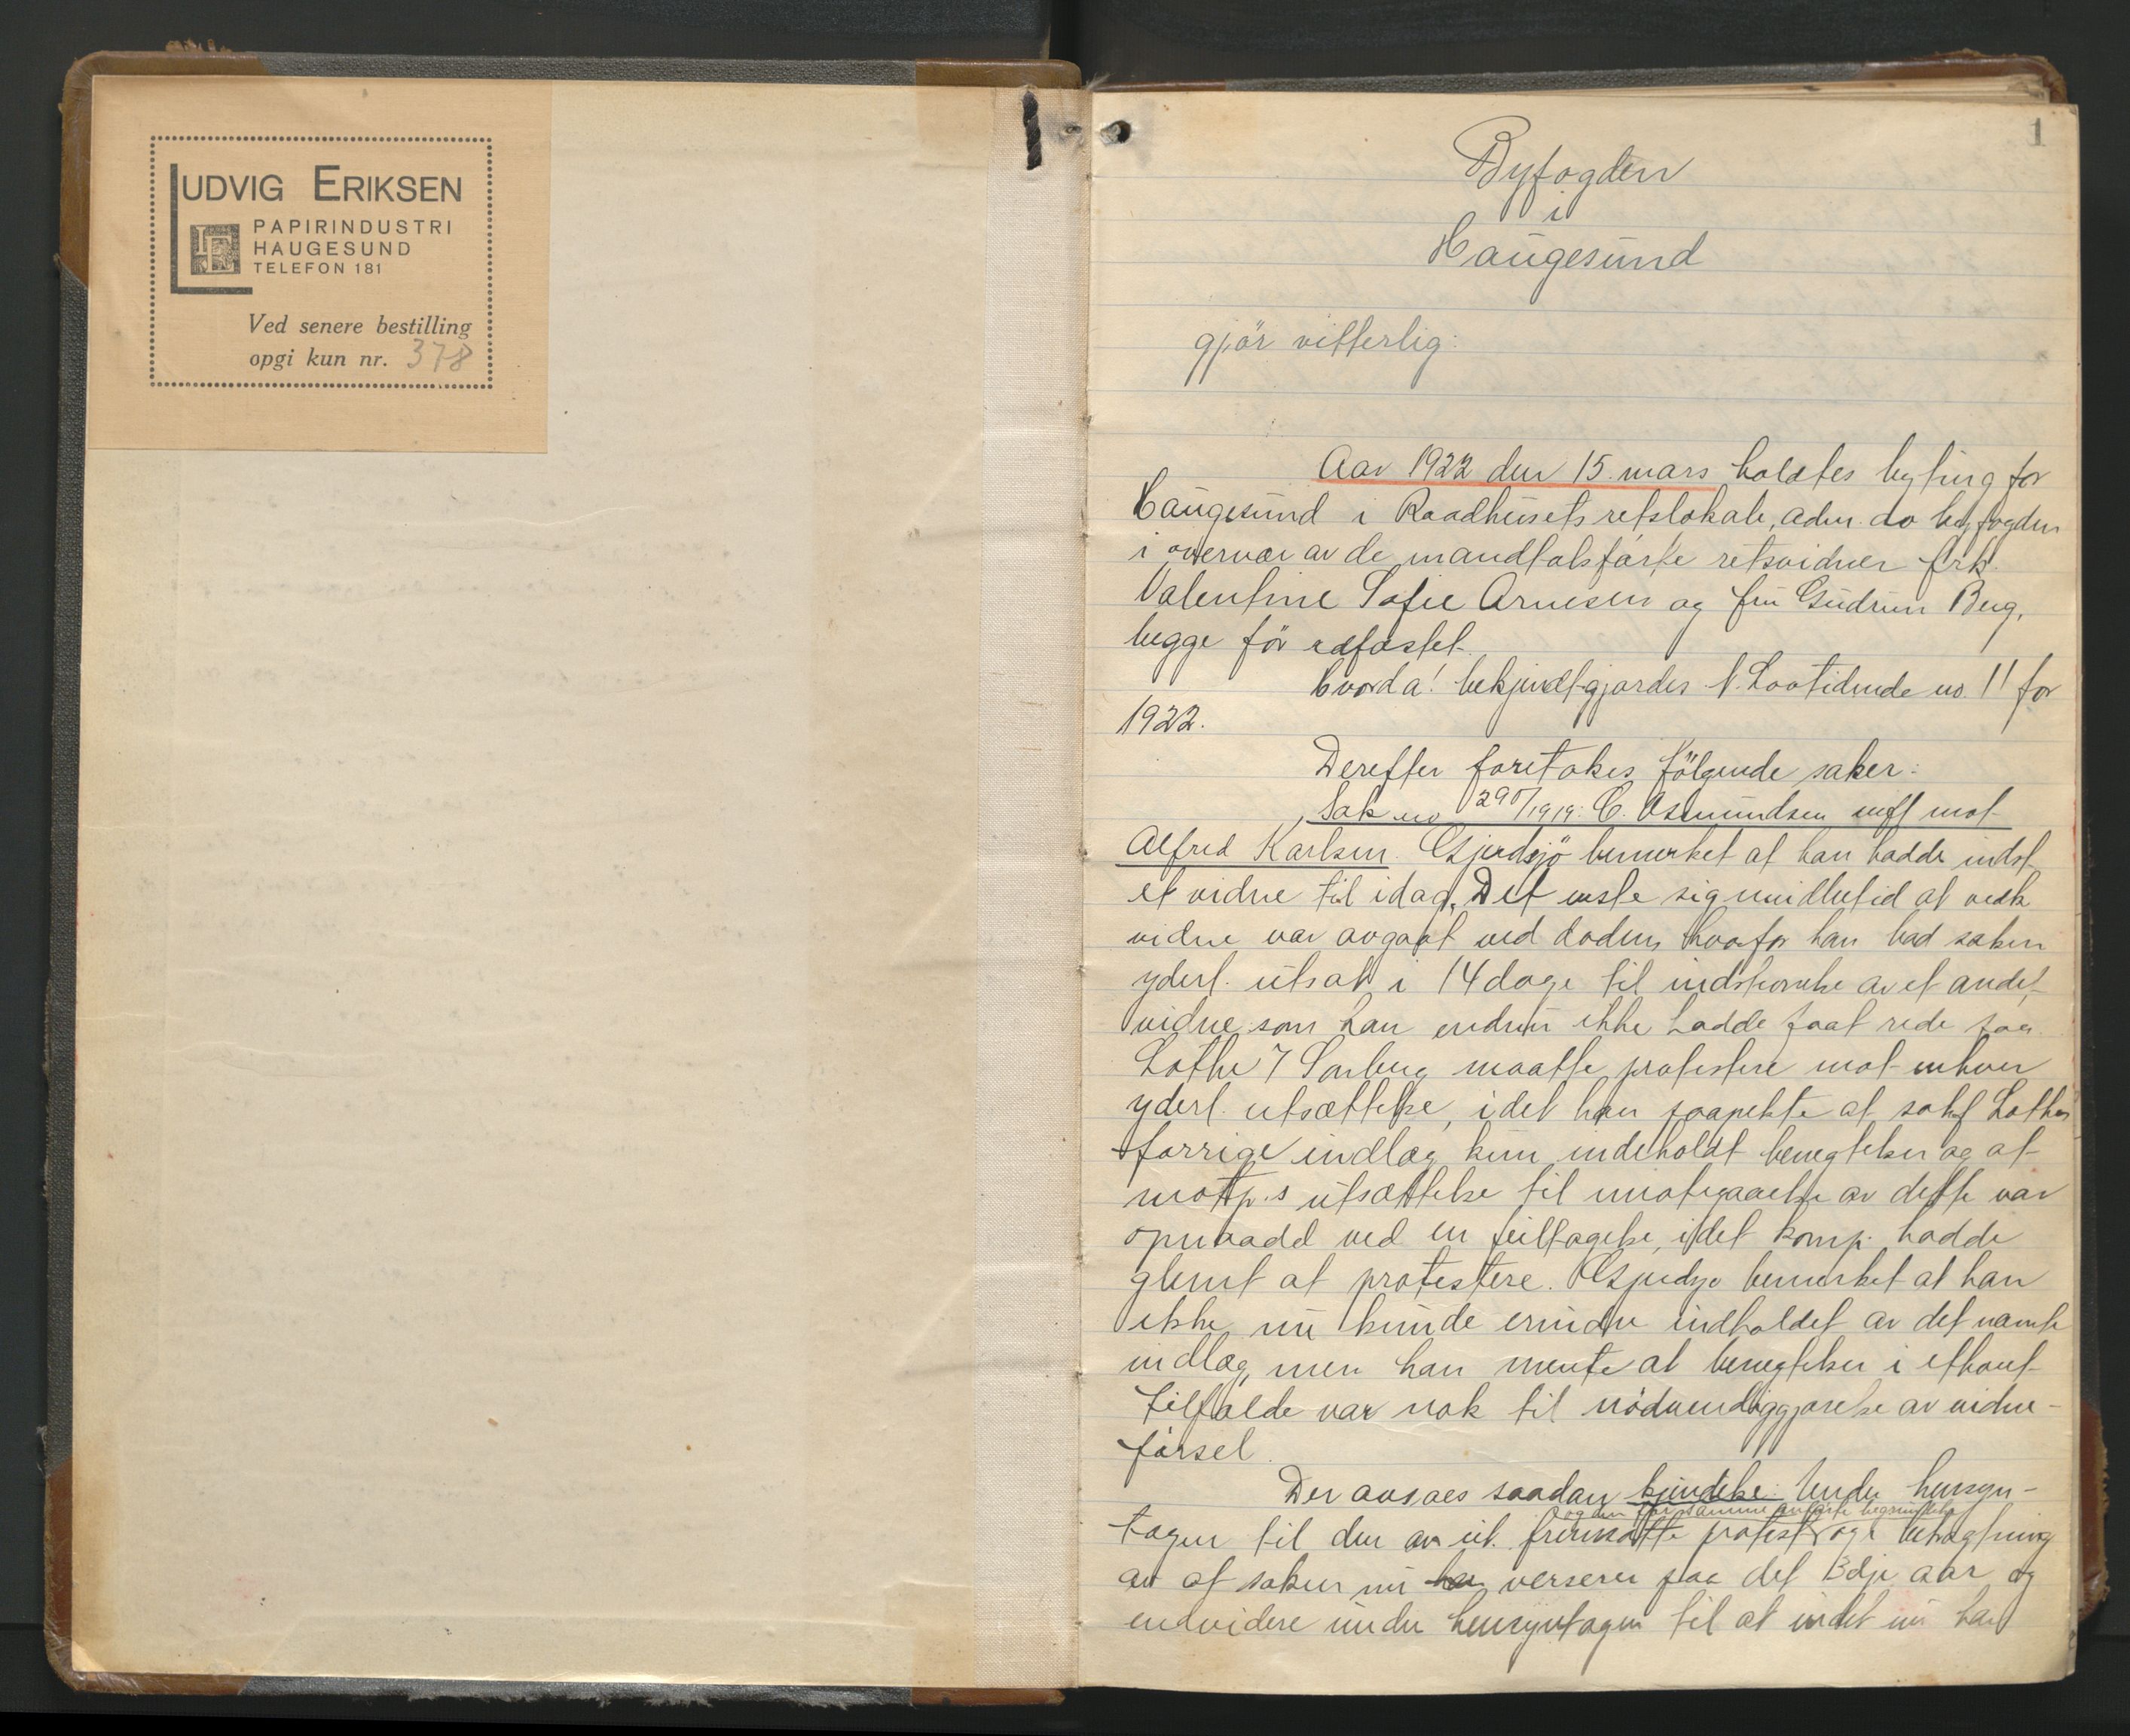 LUDVIG ERIKSEN
PAPIRINDUSTRI
HAUGESUND
TELEFON 181
Ved senere bestilling
opgi kun nr. 378
1
Byfogden
i
Haugesund
gjör vitterlig:
Aar 1922 den 15. mars holdtes byting for
Haugesund i Raadhusets retslokale, adm. av byfogden
i overvær av de mandtalsførte retsvidner frk.
Valentine Sofie Arnesen og fru Gudrun Berg,
begge før edfæstet.
Hvorda! bekjendtgjordes N. Lovtidende no. 11 for
1922.
Derefter foretokes fölgende saker:
Sak no 290/1919: C. Asmundsen mot
Alfred Karlsen. Gjerdsjö bemerket at han hadde indst.
et vidne til idag. Det viste sig imidlertid at vedk
vidne var avgaat ved døden, hvorfor han bad saken
yderl. utsat i 14 dage til indstevnelse av et andet
vidne som han endnu ikke hadde faat rede paa.
Lothe v/ Sørberg maatte protestere mot enhver
yderl. utsættelse, idet han paapekte at sakf. Lothes
forrige indlæg kun indeholdt benegtelser og at
motp.s utsættelse til imøtegaaelse av dette var
opnaadd ved en feiltagelse, idet komp. hadde
glemt at protestere. Gjerdsjø bemerket at han
ikke nu kunde erindre indholdet av det nævnte
indlæg, men han mente at benegtelser i ethvert
tilfælde var nok til nödvendiggjørelse av vidne-
førsel.
Der avsaes saadan kjendelse: Under hensyn-
og den for samme anførte begrundelse
tagen til den av cit. fremsatte protest og i betragtning
av at saken nu verserer paa det 3dje aar og
endvidere under hensyntagen til at intet nu har